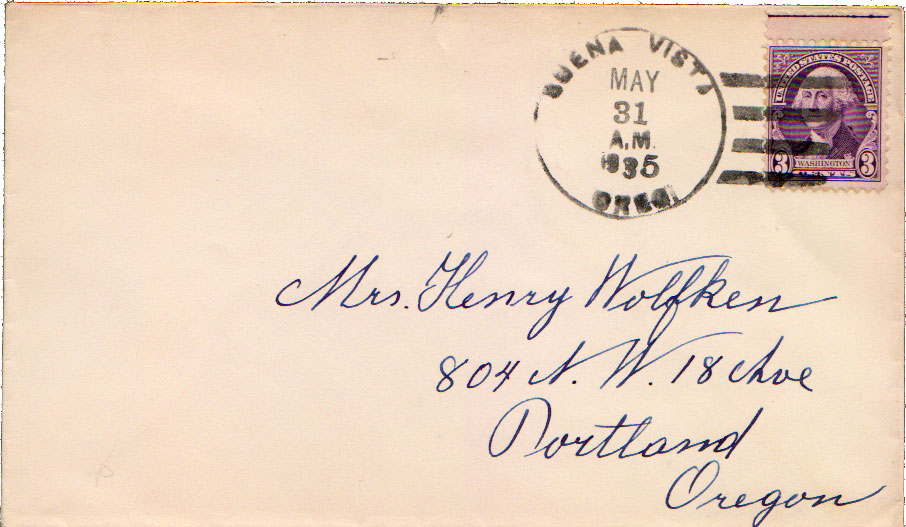 BUENA VISTA
MAY
31
A.M.
1935
OREG.
UNITED STATES POSTAGE
WASHINGTON
3 CENTS 3
Mrs. Henry Wolfken
804 N. W. 18 Ave
Portland
Oregon